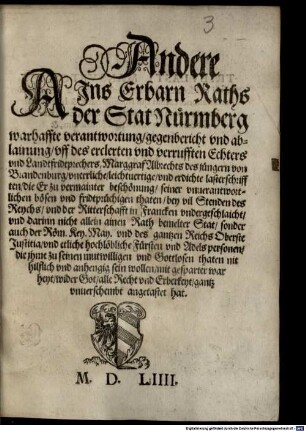 3
Andere
Ains Erbarn Raths
der Stat Nürmberg
warhaffte verantwortung/gegenbericht vnd ab-
lainung/vff des erclerten vnd verrufften Echters
vnd Landtfridprechers, Margraf Albrechts des jüngern von
Brandenburg/vnerliche/leichtuertige/vnd erdichte lasterschrifft
ten/die Er zu vermainter beschönung/seiner vnuerantwort-
lichen bösen vnd fridprüchigen thaten/bey vil Stenden des
Reychs/vnd der Ritterschafft in Francken vndergeschlaicht/
vnd darinn nicht allein ainen Rath bemelter Stat/sonder
auch der Röm. Key. May. vnd des gantzen Reichs Oberste
Justitia/vnd etlicht hochlöbliche Fürsten vnd Adels personen/
die jhme zu seinen mutwilligen vnd Gottlosen thaten nit
hilfflich vnd anhengig sein wollen/mit gesparter war
heyt/wider Got/alle Recht vnd Erberkeyt/gantz
vnuerschembt angetastet hat.
M. D. LIIII.